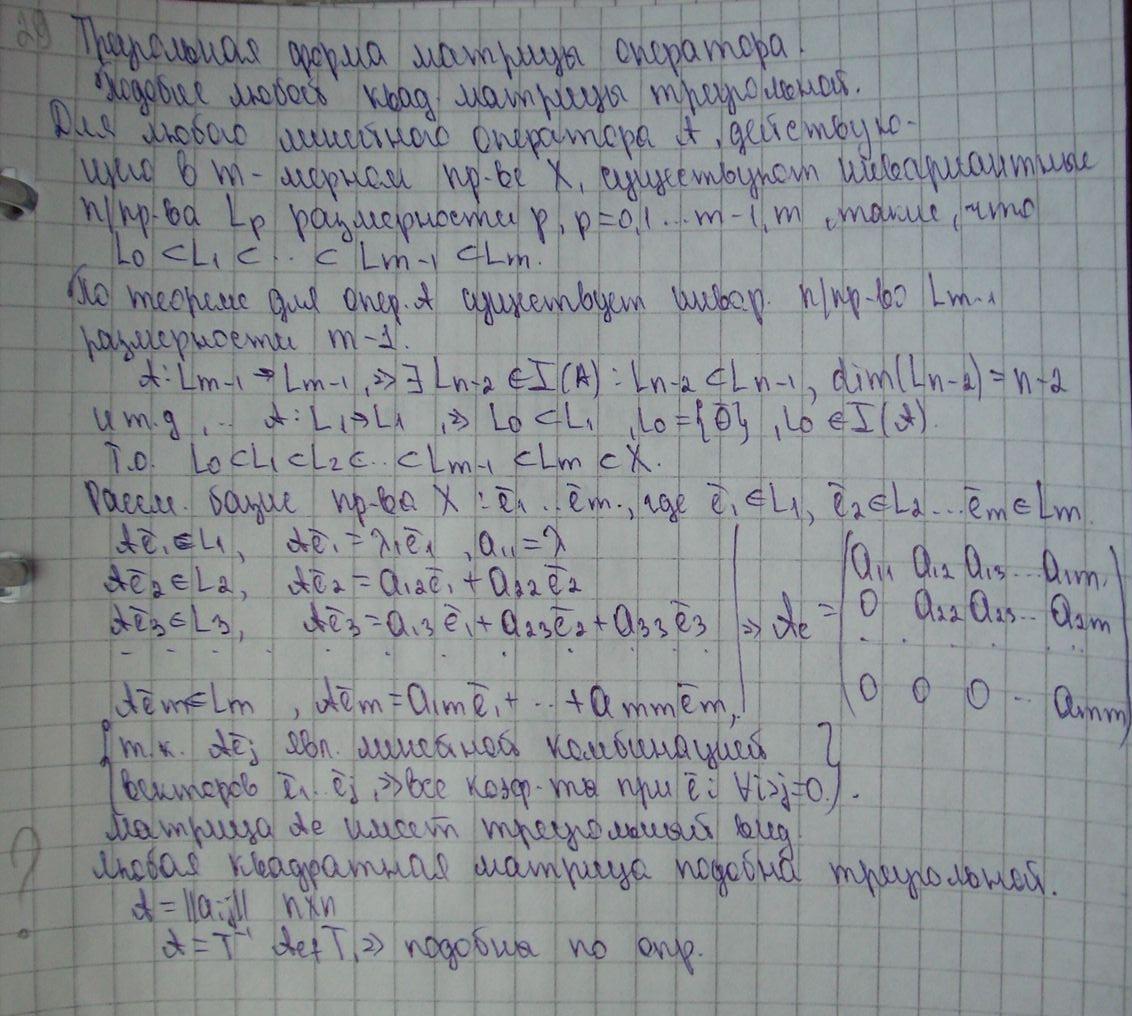 29 Треугольная форма матрицы оператора.
Подобие любой квад. матрицы треугольной.
Для любого линейного оператора A, действую-
щего в m-мерном пр-ве X, существуют инвариантные
п/пр-ва Lp размерности p, p=0,1...m-1,m, такие, что
L₀ ⊂ L₁ ⊂ ... ⊂ Lm-1 ⊂ Lm.
По теореме для опер. A существует инвар. п/пр-во Lm-1
размерности m-1.
A: Lm-1 → Lm-1, ⇒ ∃ Ln-2 ∈ I(A): Ln-2 ⊂ Ln-1, dim(Ln-2) = n-2
и т.д ,... A: L₁ → L₁ , ⇒ L₀ ⊂ L₁ , L₀ = {0̄} , L₀ ∈ I(A).
Т.о. L₀ ⊂ L₁ ⊂ L₂ ⊂ ... ⊂ Lm-1 ⊂ Lm ⊂ X.
Рассм. базис пр-ва X: ē₁ ... ēm, где ē₁ ∈ L₁, ē₂ ∈ L₂ ... ēm ∈ Lm.
Aē₁ ∈ L₁, Aē₁ = λ₁ē₁ , a₁₁ = λ
Aē₂ ∈ L₂, Aē₂ = a₁₂ē₁ + a₂₂ē₂
Aē₃ ∈ L₃, Aē₃ = a₁₃ē₁ + a₂₃ē₂ + a₃₃ē₃
Aēm ∈ Lm , Aēm = a₁mē₁ + ... + ammēm,
⇒ Ae =
a₁₁ a₁₂ a₁₃ ... a₁m
0 a₂₂ a₂₃ ... a₂m
. . . . .
0 0 0 ... amm
{т.к. Aēj явл. линейной комбинацией
векторов ē₁...ēj, ⇒ все коэф-ты при ēi ∀i>j=0.}.
Матрица Ae имеет треугольный вид.
? Любая квадратная матрица подобна треугольной.
A = ||aij|| n×n
A = T⁻¹ Ae₊ T, ⇒ подобны по опр.